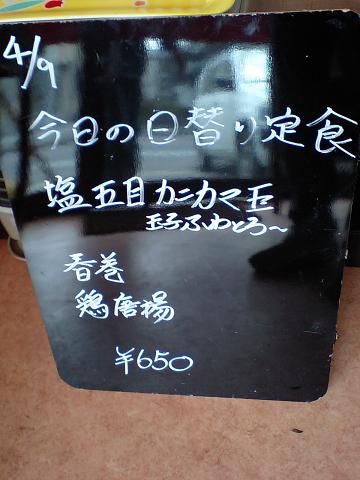 4/9
今日の日替り定食
塩五目カニカマ玉
玉子ふわとろ〜
春巻
鶏唐揚
¥650